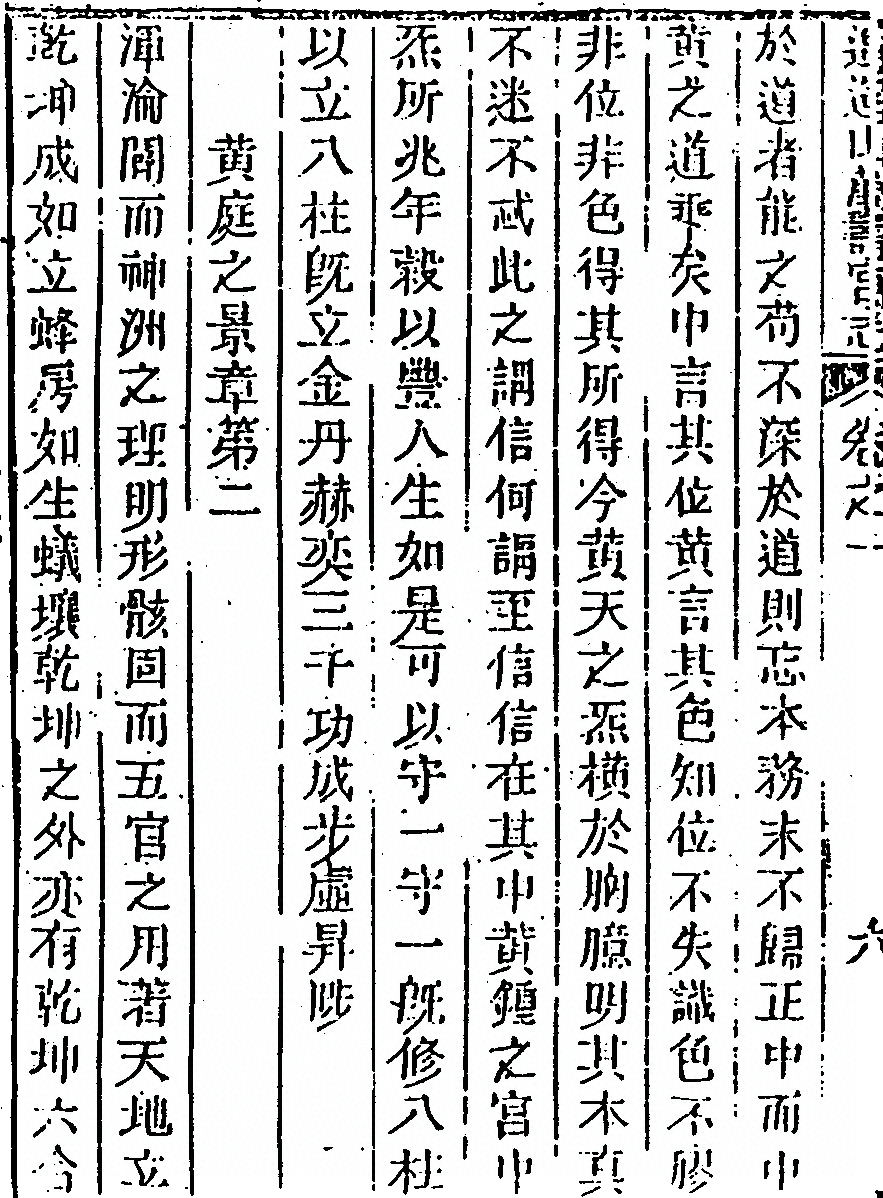 卷之一 六
於道者能之苟不深於道則忘本務末不歸正中而中
黃之道乖矣中言其位黃言其色知位不失識色不膠
非位非色得其所得今黃天之炁橫於胸臆明其本真
不迷不忒此之謂信何謂至信信在其中黃鍾之宮中
炁所兆年穀以豐人生如是可以守一守一既修八柱
以立八柱既立金丹赫奕三千功成步虛昇陛
黃庭之景章第二
渾淪闢而神洲之理明形骸固而五官之用著天地立
乾坤成如立蜂房如生蟻壤乾坤之外亦有乾坤六合